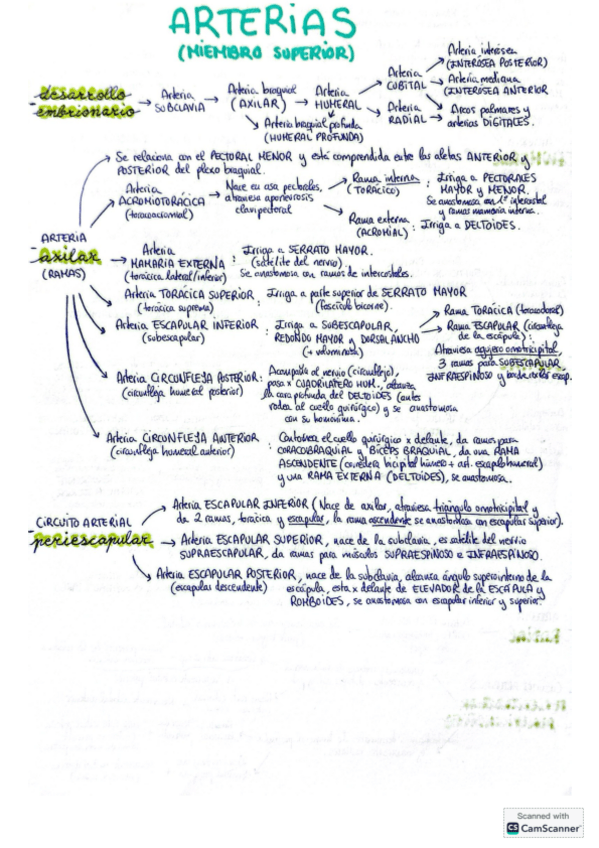 ARTERIAS
(MIEMBRO SUPERIOR)
desarrollo embrionario → Arteria SUBCLAVIA → Arteria braquial (AXILAR) → Arteria HUMERAL → Arteria CUBITAL → Arteria interósea (INTERÓSEA POSTERIOR)
Arteria mediana (INTERÓSEA ANTERIOR
Arteria RADIAL → Arcos palmares y arterias DIGITALES.
Arteria braquial profunda (HUMERAL PROFUNDA)
ARTERIA axilar (RAMAS)
Se relaciona con el PECTORAL MENOR y está comprendida entre las aletas ANTERIOR y
POSTERIOR del plexo braquial.
Arteria ACROMIOTORÁCICA (toracoacromial) → Nace en cara pectorales,
atraviesa aponeurosis
clavipectoral
Rama interna (TORÁCICO) : Irriga a PECTORALES
MAYOR y MENOR.
Se anastomosa con 1º intercostal
y ramas mamaria interna.
Rama externa (ACROMIAL) : Irriga a DELTOIDES.
Arteria MAMARIA EXTERNA (torácica lateral/inferior) : Irriga a SERRATO MAYOR.
(satélite del nervio)
Se anastomosa con ramos de intercostales.
Arteria TORÁCICA SUPERIOR (torácica suprema) : Irriga a parte superior de SERRATO MAYOR
Arteria ESCAPULAR INFERIOR (subescapular) : Irriga a SUBESCAPULAR,
REDONDO MAYOR y DORSAL ANCHO
(+ voluminosa)
Rama TORÁCICA (toracodorsal)
Rama ESCAPULAR (circunfleja
de la escápula):
Atraviesa agujero omotricipital,
3 ramas para SUBESCAPULAR,
INFRAESPINOSO y
Arteria CIRCUNFLEJA POSTERIOR (circunfleja humeral posterior) : Acompaña al nervio (circunflejo),
pasa x CUADRILÁTERO HUM., alcanza
la cara profunda del DELTOIDES (antes
rodea al cuello quirúrgico) y se anastomosa
con su homónima.
Arteria CIRCUNFLEJA ANTERIOR (circunfleja humeral anterior) : Contornea el cuello quirúrgico x delante, da ramos para
CORACOBRAQUIAL y BÍCEPS BRAQUIAL, da una RAMA
ASCENDENTE (corredera bicipital húmero + art. escapulohumeral)
y una RAMA EXTERNA (DELTOIDES), se anastomosa.
CIRCUITO ARTERIAL periescapular
Arteria ESCAPULAR INFERIOR (Nace de axilar, atraviesa triángulo omotricipital y
da 2 ramas, torácica y escapular, la rama ascendente se anastomosa con escapular superior).
Arteria ESCAPULAR SUPERIOR, nace de la subclavia, es satélite del nervio
SUPRAESCAPULAR, da ramas para músculos SUPRAESPINOSO e INFRAESPINOSO.
Arteria ESCAPULAR POSTERIOR, nace de la subclavia, alcanza ángulo superointerno de la
(escapular descendente) escápula, esta x delante de ELEVADOR de la ESCÁPULA y
ROMBOIDES, se anastomosa con escapular inferior y superior.
Scanned with
CS CamScanner